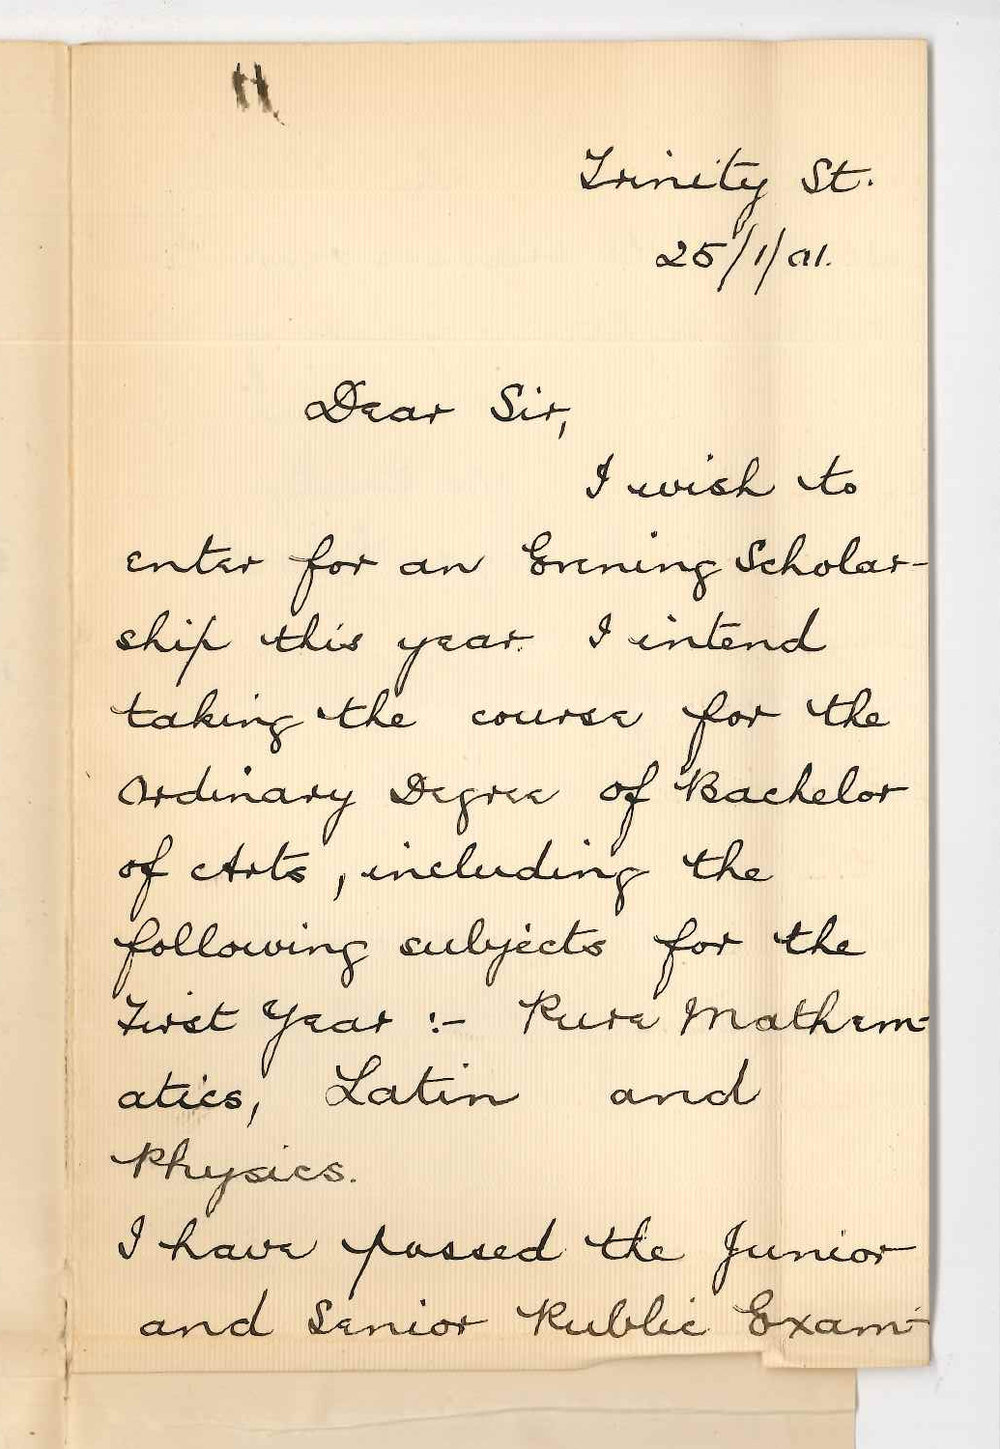 Trinity St.
25/1/01.
Dear Sir,
I wish to
enter for an Evening Scholar-
ship this year. I intend
taking the course for the
Ordinary Degree of Bachelor
of Arts, including the
following subjects for the
First Year :- Pure Mathem-
atics, Latin and
Physics.
I have passed the Junior
and Senior Public Exam-